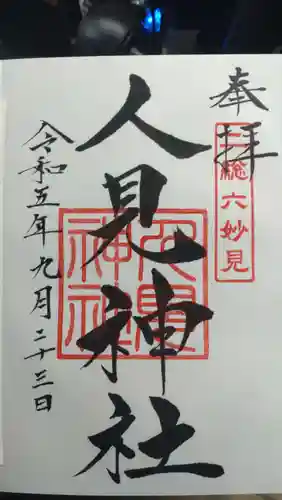 奉拝
総六妙見
人見神社
人見神社
令和五年九月二十三日